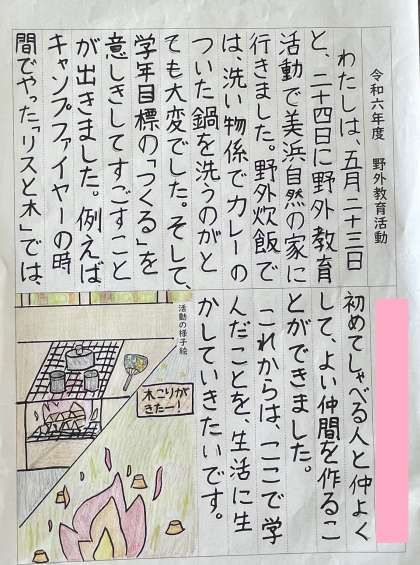 令和六年度　野外教育活動
わたしは、五月二十三日
と、二十四日に野外教育
活動で美浜自然の家に
行きました。野外炊飯で
は、洗い物係でカレーの
ついた鍋を洗うのがと
ても大変でした。そして、
学年目標の「つくる」を
意しきしてすごすこと
が出きました。例えば
キャンプファイヤーの時
間でやった「リスと木」では、
初めてしゃべる人と仲よく
して、よい仲間を作るこ
とができました。
これからは、「ここで学
んだことを、生活に生
かしていきたいです。
活動の様子絵
木こりが
きたー！